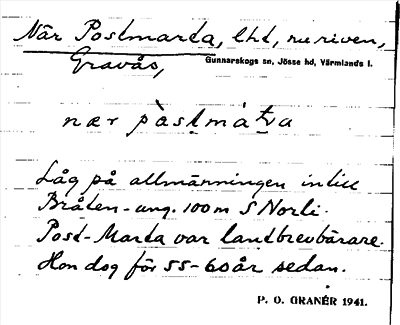 När Postmarta, lht, nu riven,
Gravås,
Gunnarskogs sn, Jösse hd, Värmlands l.
nær pàstmáṯva
Låg på allmänningen intill
Bråten - ung. 100 m S Norli.
Post-Marta var lantbrevbärare.
Hon dog för 55-60 år sedan.
P. O. GRANÉR 1941.